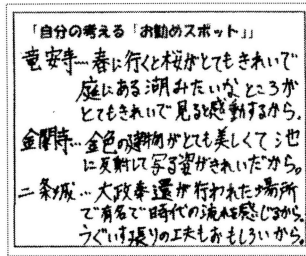 「自分の考える「お勧めスポット」」
竜安寺…春に行くと桜がとてもきれいで
庭にある湖みたいなところが
とてもきれいで見ると感動するから。
金閣寺…金色の建物がとても美しくて池
に反射して写る姿がきれいだから。
二条城…大政奉還が行われた場所
で有名で時代の流れを感じるから。
うぐいす張りの工夫もおもしろいから。